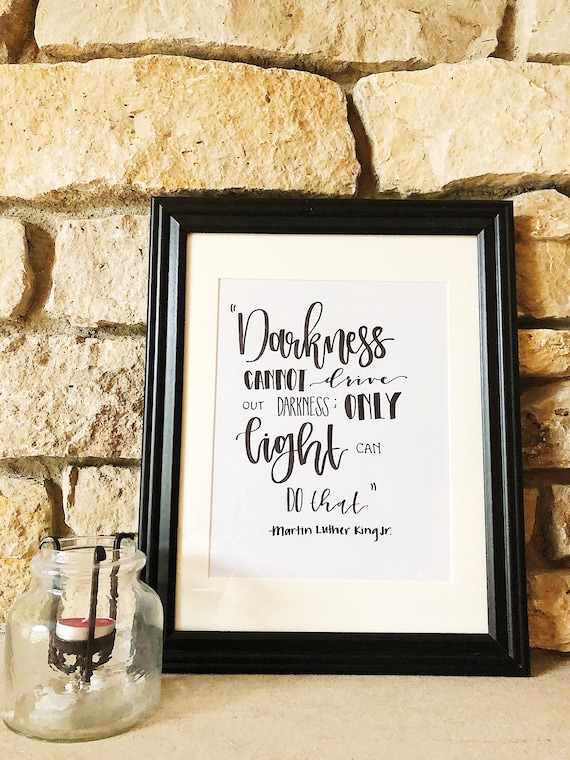 "Darkness
CANNOT drive
OUT DARKNESS; ONLY
light CAN
DO that"
-Martin Luther King Jr.